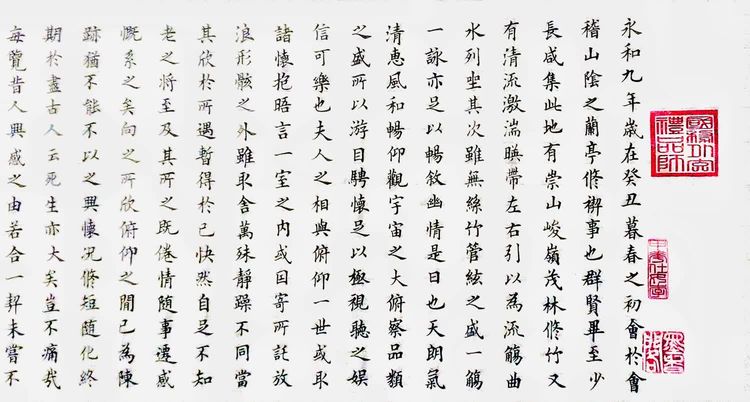 永和九年歲在癸丑暮春之初會於會
稽山陰之蘭亭修禊事也群賢畢至少
長咸集此地有崇山峻嶺茂林修竹又
有清流激湍暎帶左右引以為流觴曲
水列坐其次雖無絲竹管絃之盛一觴
一詠亦足以暢敘幽情是日也天朗氣
清惠風和暢仰觀宇宙之大俯察品類
之盛所以游目騁懷足以極視聽之娛
信可樂也夫人之相與俯仰一世或取
諸懷抱晤言一室之內或因寄所託放
浪形骸之外雖取舍萬殊靜躁不同當
其欣於所遇暫得於己快然自足不知
老之將至及其所之既倦情隨事遷感
慨系之矣向之所欣俯仰之間已為陳
跡猶不能不以之興懷況修短隨化終
期於盡古人云死生亦大矣豈不痛哉
每覽昔人興感之由若合一契未嘗不
禮品師